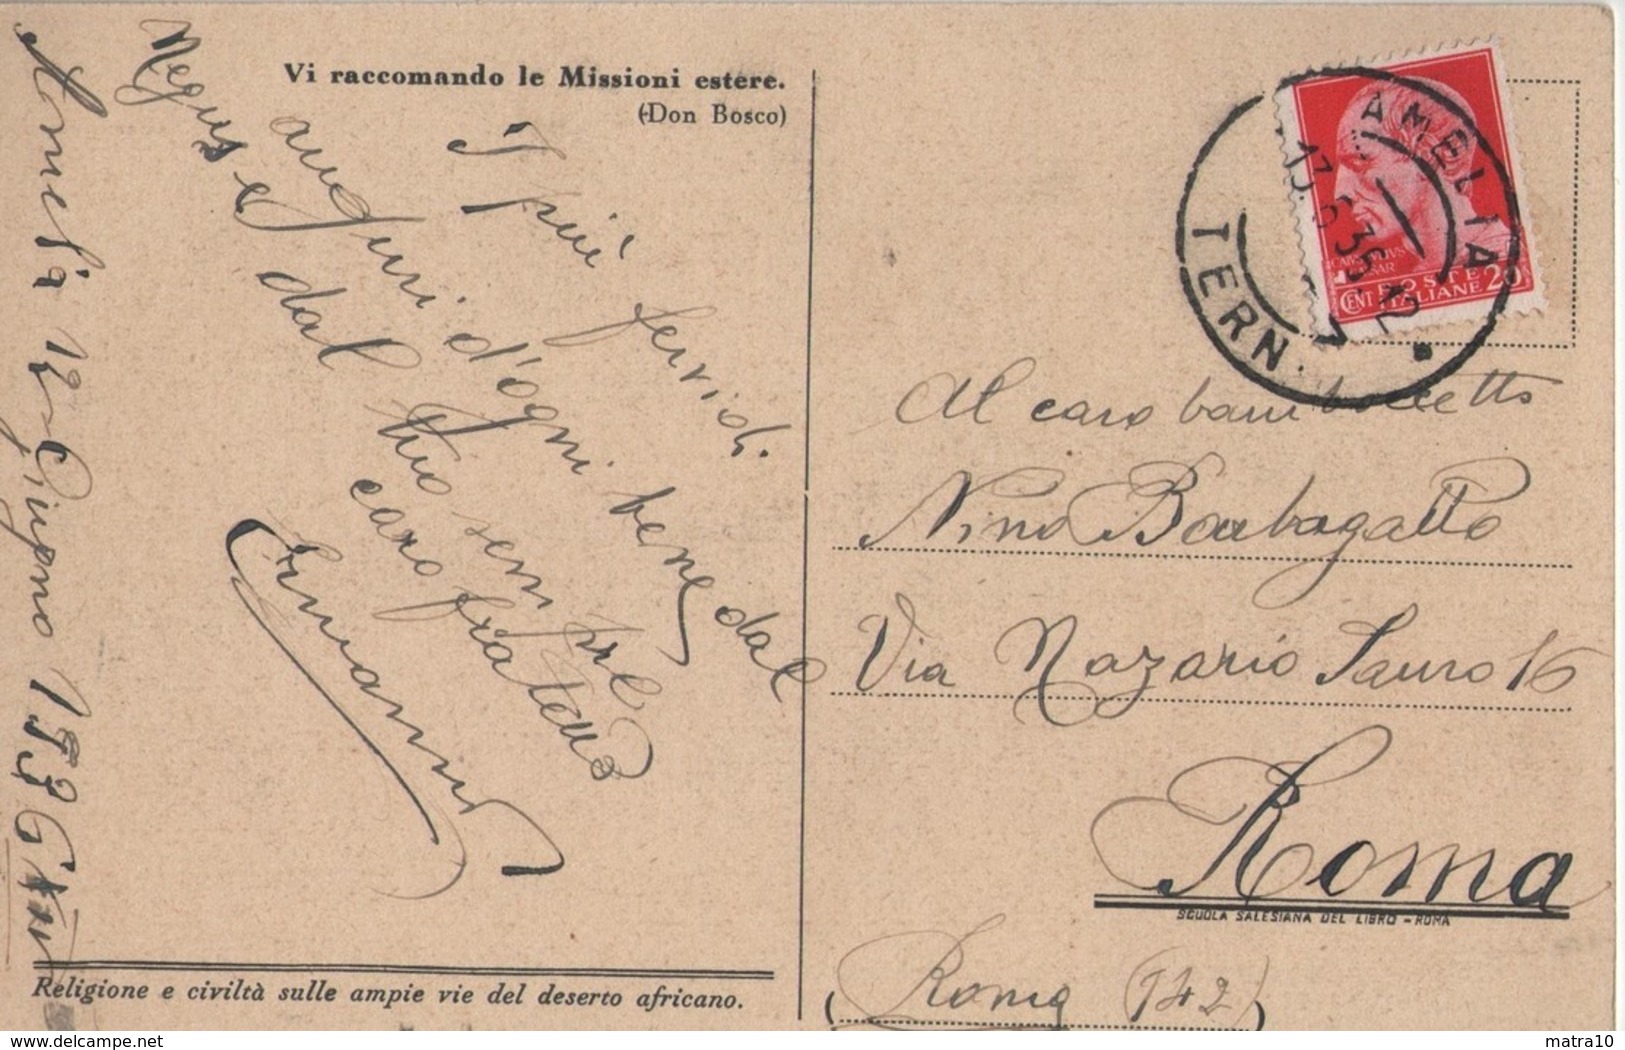 Vi raccomando le Missioni estere.
(Don Bosco)
I più fervidi
auguri d'ogni bene dal
Negus e dal tuo sempre
caro fratello
Ermanno
Amelia 12 Giugno 1936 XIV
Religione e civiltà sulle ampie vie del deserto africano.
AMELIA
13.6.36.12
TERNI
POSTE
ITALIANE
CENT 20
Al caro bamboccetto
Nino Barbagallo
Via Nazario Sauro 16
Roma
SCUOLA SALESIANA DEL LIBRO - ROMA
(Roma (142)
delcampe.net
matra10